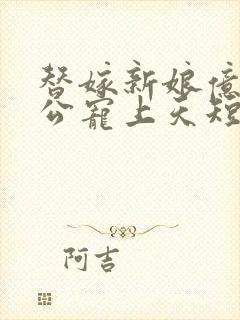 替嫁新娘億
公寵上天短
阿吉